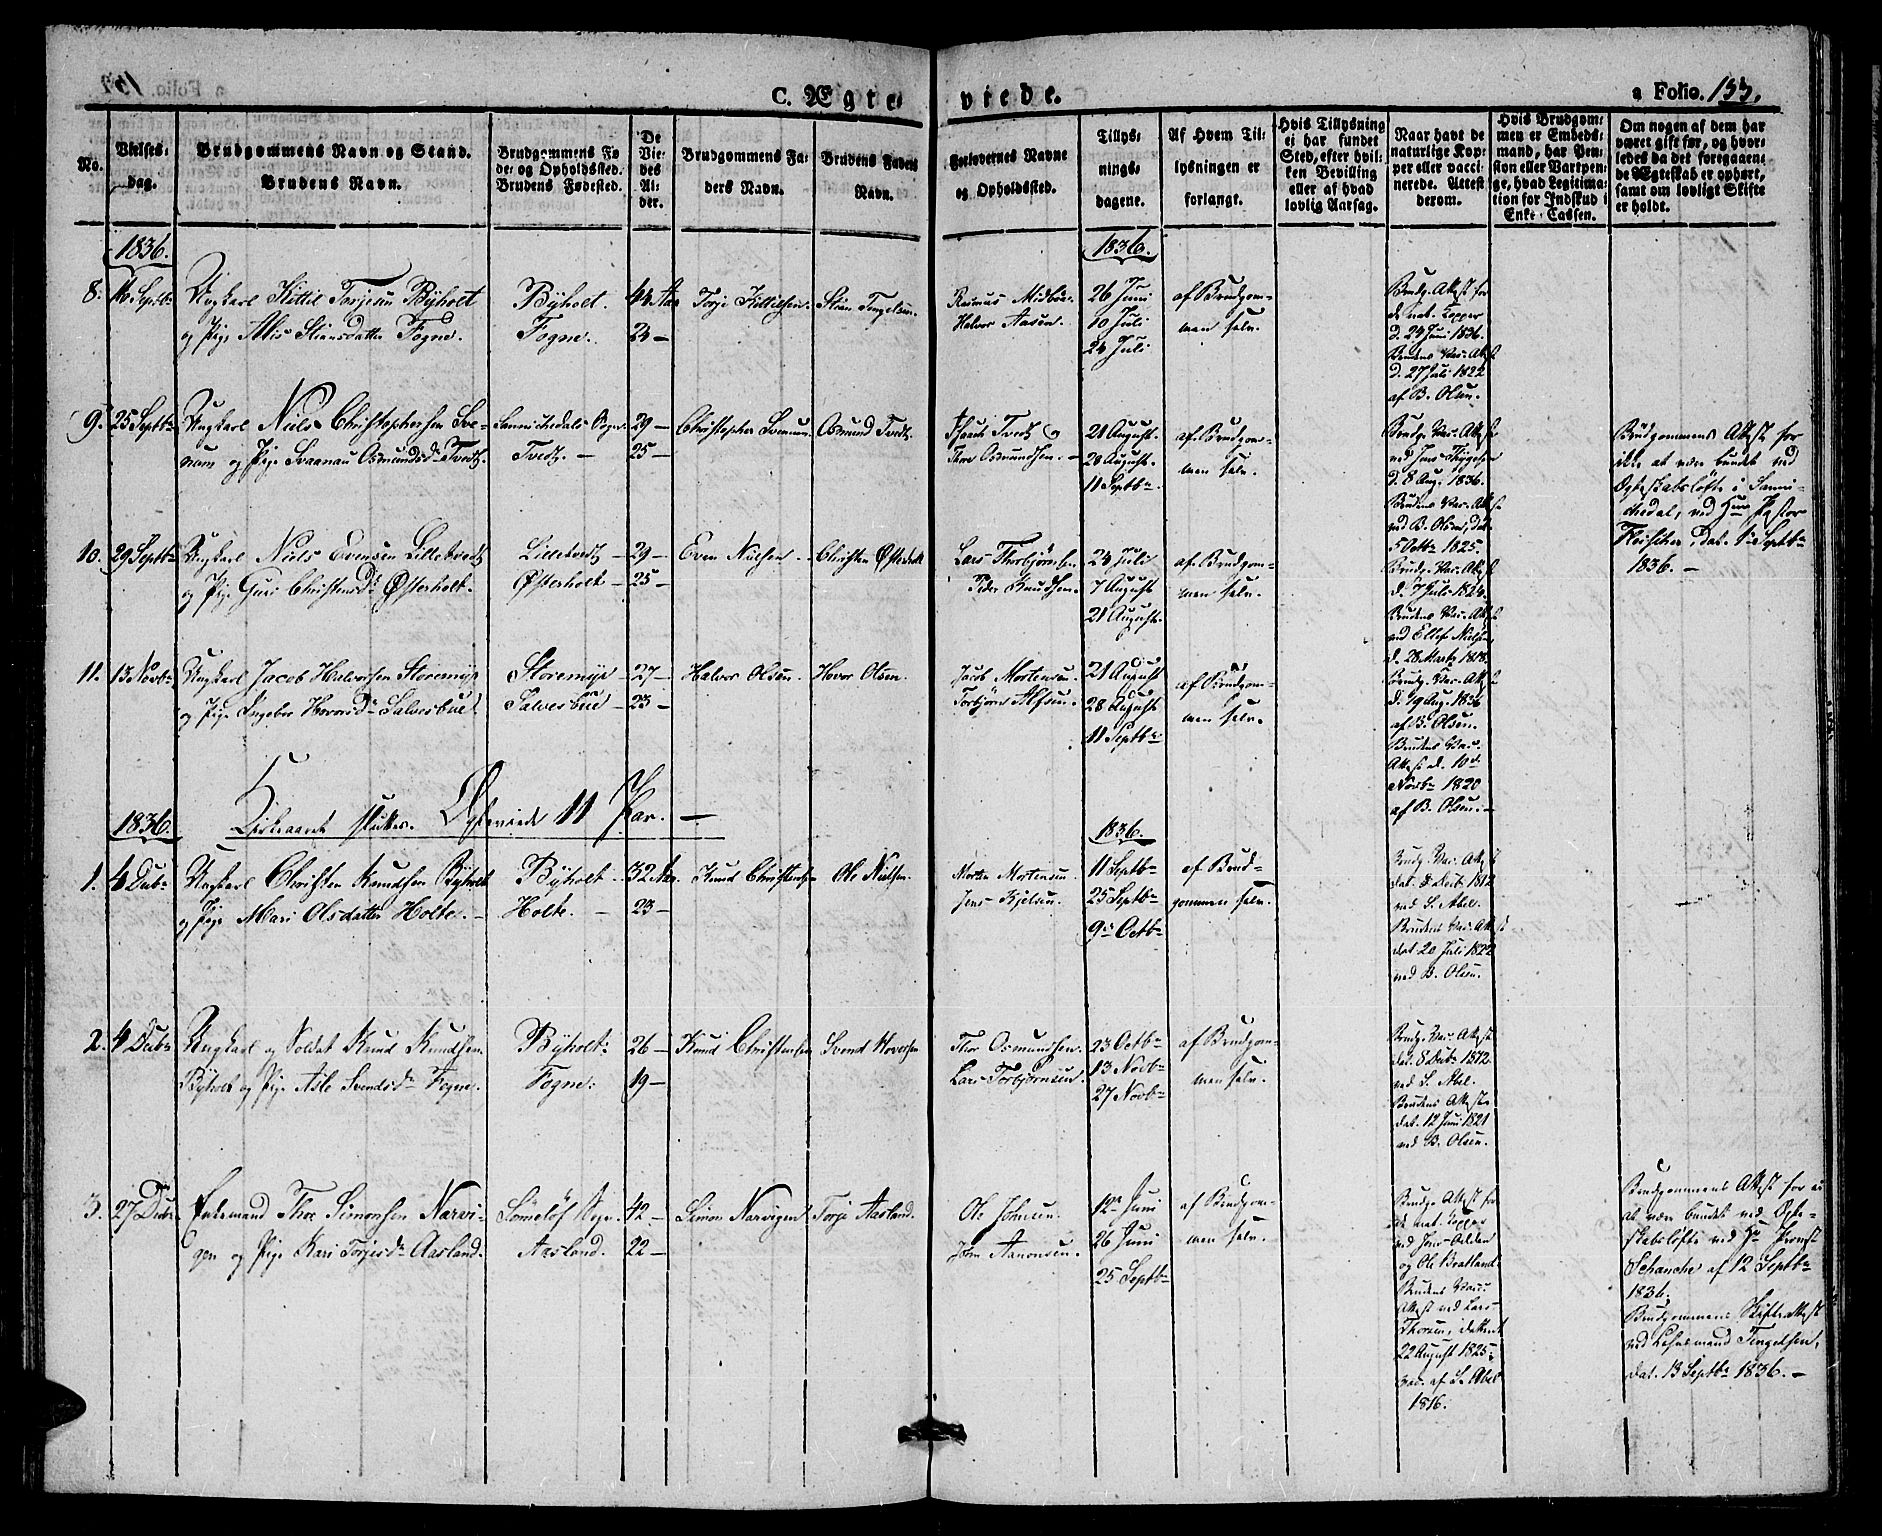 C. Ægteviede.
a Folio. 133.
No.
Vielses-dag.
Brudgommens Navn og Stand.
Brudens Navn.
Brudgommens Fø-
de- og Opholdssted.
Brudens Fødested.
De
Vie-
des
Al-
der.
Brudgommens Fa-
ders Navn.
Brudens Faders
Navn.
Forlovernes Navne
og Opholdssted.
Tillys-
nings-
dagene.
Af Hvem Til-
lysningen er
forlangt.
Hvis Tillysning
ei har fundet
Sted, efter hvil-
ken Bevilling
eller af hvad
lovlig Aarsag.
Naar havt de
naturlige Kop-
per eller vacci-
nerede. Attest
derom.
Hvis Brudgom-
men er Embeds-
mand, har Pen-
sion eller Vartpen-
ge, hvad Legitima-
tion for Indskud i
Enke-Cassen.
Om nogen af dem har
været gift før, og hvor-
ledes da det foregaaen-
de Ægteskab er ophørt,
samt om lovligt Skifte
er holdt.
1836.
1836.
8. 16 Septbr Ungkarl Kittil Torjesen Byholt
og Pige Alis Stiansdatter Fogne.
Byholt. 44 Aar
Fogne. 24 —
Torje Kittilsen. Stian Tengelsen.
Rasmus Midboe.
Halvor Aasen.
26 Juni
10 Juli
24 Juli
af Brudgom-
men selv.
Brudg. Attest for
de nat. Kopper
d. 24 Juni 1836.
Brudens Vac. Attest
d. 27 Juli 1822
af B. Olsen.
9. 25 Septbr Ungkarl Niels Christophersen Sve-
num og Pige Svaanau Osmundsdr Tvedt.
Sannikedals Sogn 29 —
Tvedt. — 25 —
Christopher Svenum Osmund Tvedt.
Tvedt og
Thor Osmundsen. —
21 August.
28 August.
11 Septbr.
af Brudgom-
men selv.
Brudg. Vac. Attest
d. 8 Aug. 1836.
Brudens Vac. Attest
ved B. Olsen, dat.
5 Octbr 1825.
Brudgommens Attest for
ikke at være bundet ved
Ægteskabsløfte i Sanni-
kedal, ved Hrr Pastor
Fleischer, dat. Septbr
1836. —
10. 29 Septbr Ungkarl Niels Evensen Lilletvedt
og Pige Guri Christensdr Østerholt.
Lilletvedt — 29 —
Østerholt — 25 —
Even Nielsen. Christen Østerholt
Lars Thorbjørnsen
Peder Knudsen.
24 Juli
7 August
21 August.
af Brudgom-
men selv.
Brudg. Vac. Attest
d. 7 Juli 1824.
Brudens Vac. Attest
ved Ellef Nielsen,
d. 28 Marts 1818.
11. 13 Novbr Ungkarl Jacob Halvorsen Storemyr
og Pige Ingebor Hovorsdr Salvesbue
Storemyr — 27 —
Salvesbue — 23 —
Halvor Olsen. Hovor Olsen.
Jacob Mortensen
Torbjørn Alfsen.
21 August
28 August
11 Septbr
af Brudgom-
men selv.
Brudg. Vac. Attest
d. 19 Aug. 1836
af B. Olsen.
Brudens Vac.
Attest d. 10de
Novbr 1820
af B. Olsen. —
Kirkeaaret sluttes. Ægteviede 11 Par. —
1836.
1836.
1. 4 Decbr Ungkarl Christen Knudsen Byholt
og Pige Mari Olsdatter Holte. —
Byholt — 32 Aar.
Holte. — 23 —
Knud Christensen Ole Nielsen.
Morten Mortensen
Jens Kjelsen.
11 Septbr
25 Septbr
9de Octbr
af Brud-
gommen selv.
Brudg. Vac. Attest
dat. 8 Decbr 1812
ved S. Abel.
Brudens Vac. Attest
dat. 20 Juli 1822
ved B. Olsen.
2. 4 Decbr Ungkarl og Soldat Knud Knudsen
Byholt og Pige Asle Svendsdr Fogne.
Byholt: 26 —
Fogne: 19 —
Knud Christensen Svend Hovorsen
Thor Osmundsen.
Lars Torbjørnsen.
23 Octbr
13 Novbr
27 Novbr
af Brudgom-
men selv.
Brudg. Vac. Attest
dat. 8 Decbr 1812.
ved S. Abel.
Brudens Attest
dat. 12 Juni 1821
ved B. Olsen.
3. 27 Decbr. Enkemand Thor Simonsen Narvi-
gen og Pige Kari Torjesdr Aasland.
Søndeløf Sogn. 42 —
Aasland. 22 —
Simon Narvigen Torje Aasland.
Ole Johnsen.
John Aanonsen.
12te Juni
26 Juni
25 Septbr
af Brudgom-
men selv.
Brudg. Attest for
de nat. Kopper
ved Jens
og Ole Bratland.
Brudens Vacc.
Attest ved Lars
Thorsen, dateret
22 August 1825,
vac. af S. Abel
1816.
Brudgommens Attest for ei
at være bundet ved Ægte-
skabsløfte ved Hr Provst
Schanche af 12 Septbr
1836.
Brudgommens Skifteattest
ved Lehnsmand Tengelsen,
dat. 13 Septbr 1836. —